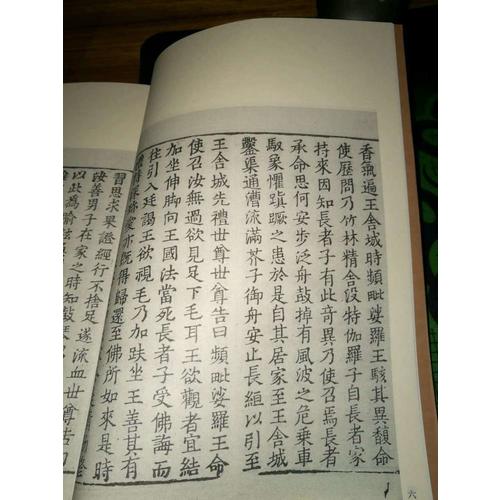 香氣遍王舍城時頻毗娑羅王駭其異馥命
使歷問乃竹林精舍没特伽羅子自長者家
持來因知長者子有此奇異乃使召焉長者
承命思何安步泛舟鼓棹有風波之危乘車
馭象懼蹎蹶之患於是自其居家至王舍城
鑿渠通漕流滿芥子御舟安止長絙以引至
王舍城先禮世尊世尊告曰頻毗娑羅王命
使召汝無過欲見足下毛耳王欲觀者宜結
加坐伸脚向王國法當死長者子受佛誨而
往引入廷謁王欲視毛乃跏趺坐王善其有
禮特深珍愛亦既得歸還至佛所如來是時
習思求果證經行不捨足遂流血世尊告曰
汝善男子在家之時知鼓琴
以此為喻絃
六